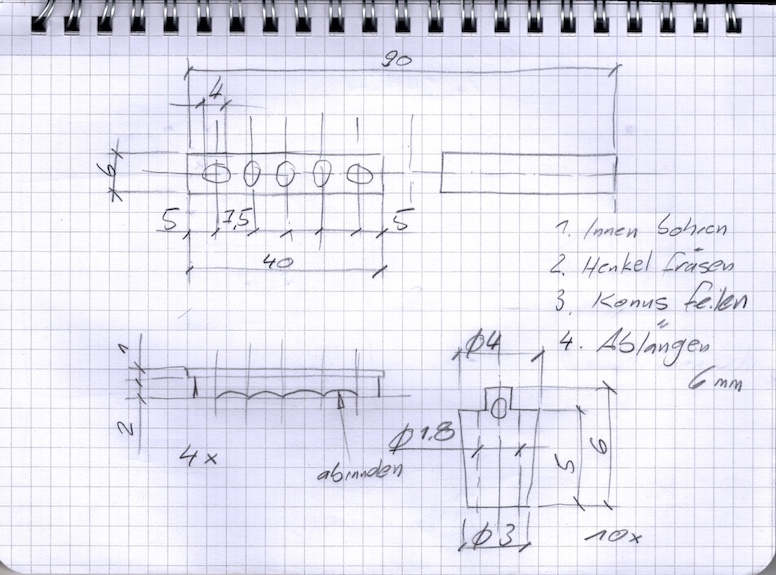 90
4
6
5 7,5 5
40
1. Innen bohren
2. Henkel fräsen
3. Konus feilen
4. Ablängen
6 mm
1
2
4x
abrunden
ϕ4
ϕ1.8
5
6
ϕ3
10x